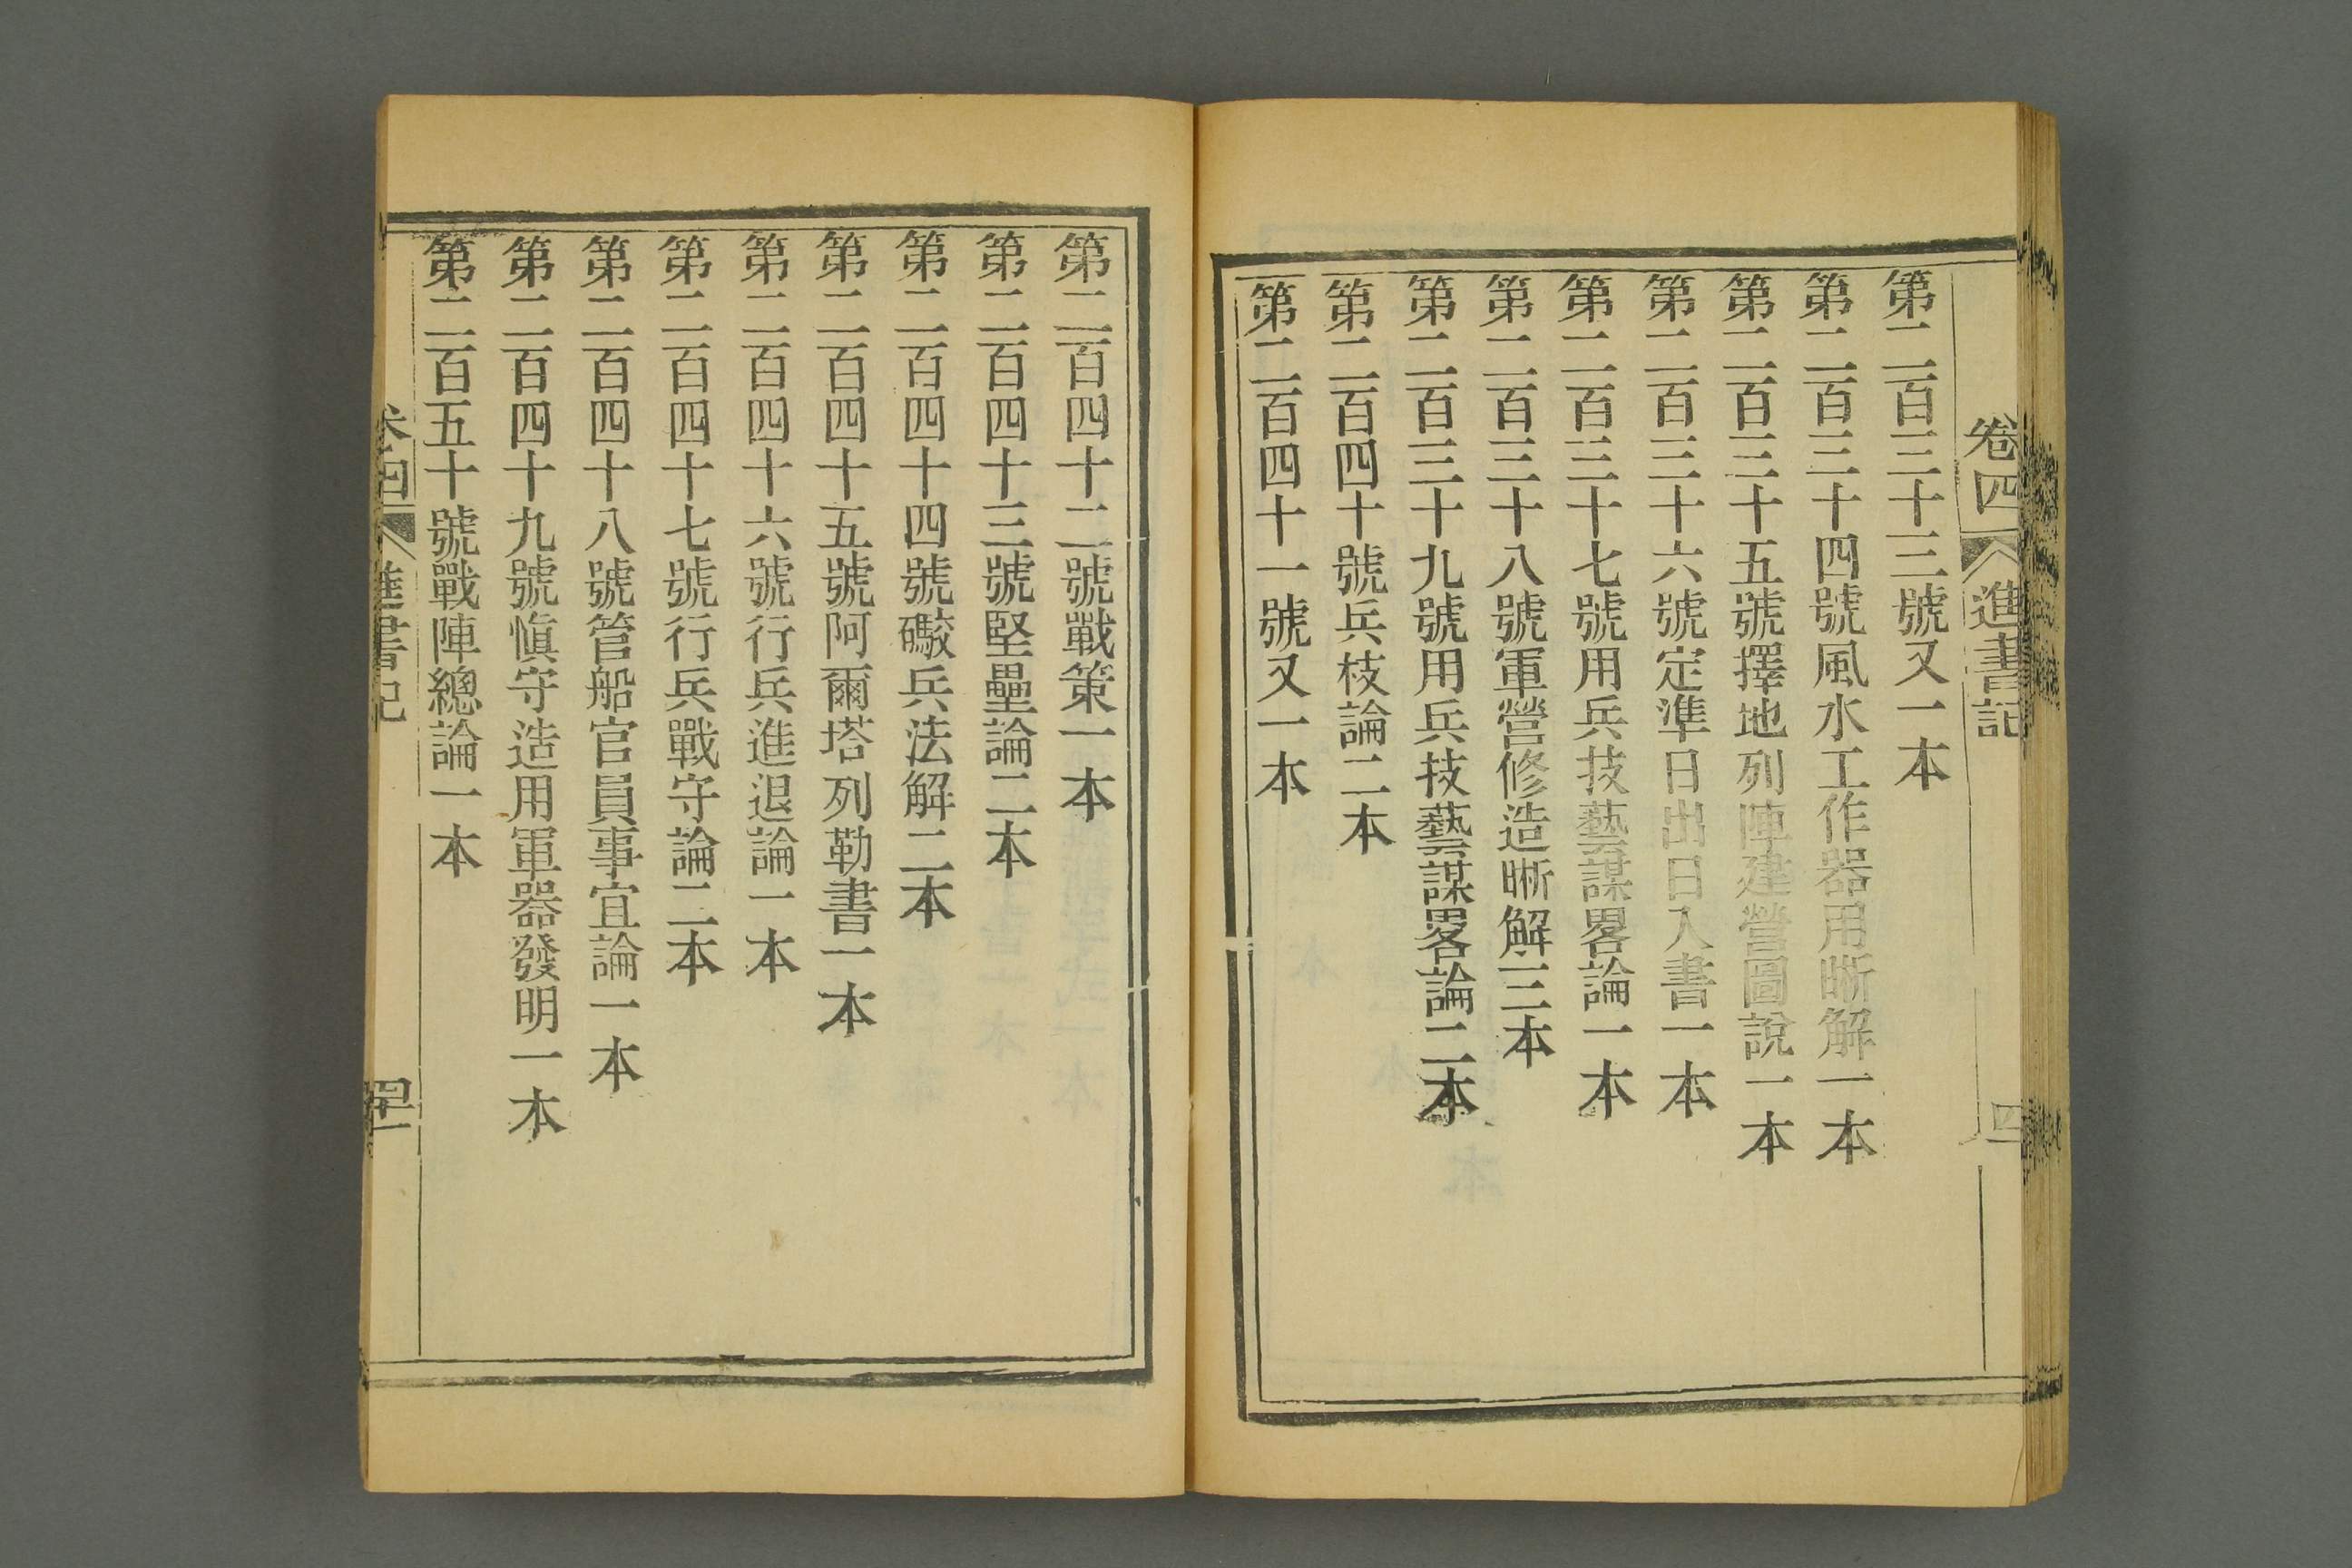 卷四 進書記 四
第二百三十三號又一本
第二百三十四號風水工作器用晰解一本
第二百三十五號擇地列陣建營圖說一本
第二百三十六號定準日出日入書一本
第二百三十七號用兵技藝謀畧論一本
第二百三十八號軍營修造晰解三本
第二百三十九號用兵技藝謀畧論二本
第二百四十號兵枝論二本
第二百四十一號又一本
第二百四十二號戰策一本
第二百四十三號堅壘論二本
第二百四十四號礮兵法解二本
第二百四十五號阿爾塔列勒書一本
第二百四十六號行兵進退論一本
第二百四十七號行兵戰守論二本
第二百四十八號管船官員事宜論一本
第二百四十九號慎守造用軍器發明一本
第二百五十號戰陣總論一本
卷四 進書記